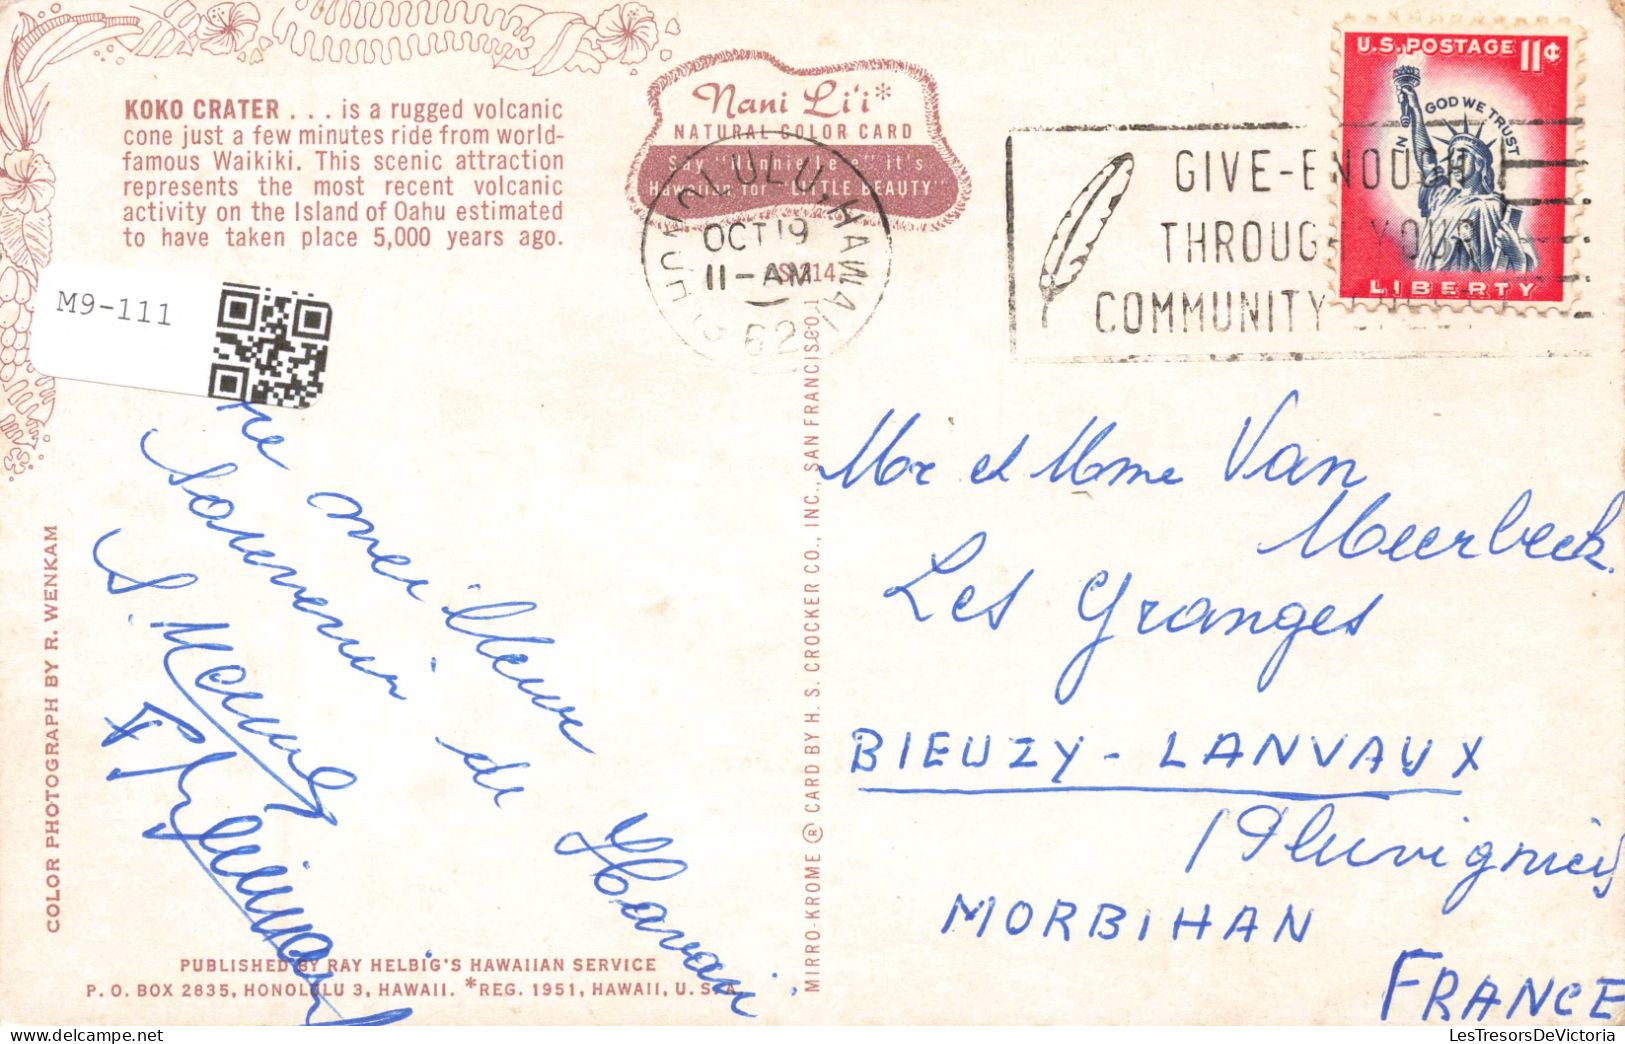 KOKO CRATER . . . is a rugged volcanic
cone just a few minutes ride from world-
famous Waikiki. This scenic attraction
represents the most recent volcanic
activity on the Island of Oahu estimated
to have taken place 5,000 years ago.
Nani Li'i*
NATURAL COLOR CARD
Say "Nannie Lee" it's
Hawaiian for "LITTLE BEAUTY"
HONOLULU, HAWAII
OCT 19
11-AM
62
GIVE-ENOUGH
THROUGH YOUR
COMMUNITY CHEST
U.S. POSTAGE 11¢
IN GOD WE TRUST
LIBERTY
M9-111
meilleur
souvenir de
Hawaii
Mr et Mme Van
Meerbeek
Les Granges
BIEUZY-LANVAUX
(Pluvigner)
MORBIHAN
FRANCE
COLOR PHOTOGRAPH BY R. WENKAM
MIRRO-KROME ® CARD BY H. S. CROCKER CO., INC., SAN FRANCISCO, 1
PUBLISHED BY RAY HELBIG'S HAWAIIAN SERVICE
P. O. BOX 2835, HONOLULU 3, HAWAII. *REG. 1951, HAWAII, U. S. A.
LesTresorsDeVictoria.com